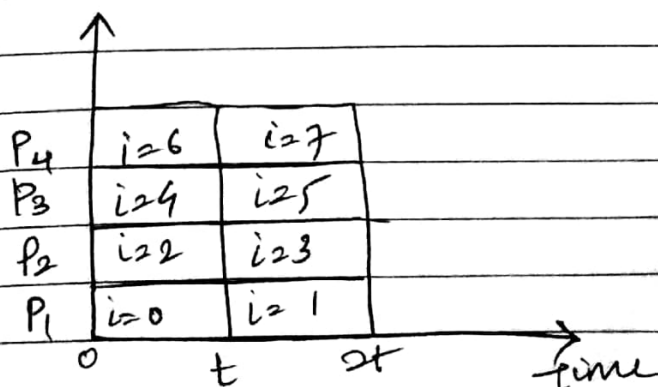 P4 i=6 i=7
P3 i=4 i=5
P2 i=2 i=3
P1 i=0 i=1
0 t 2t time